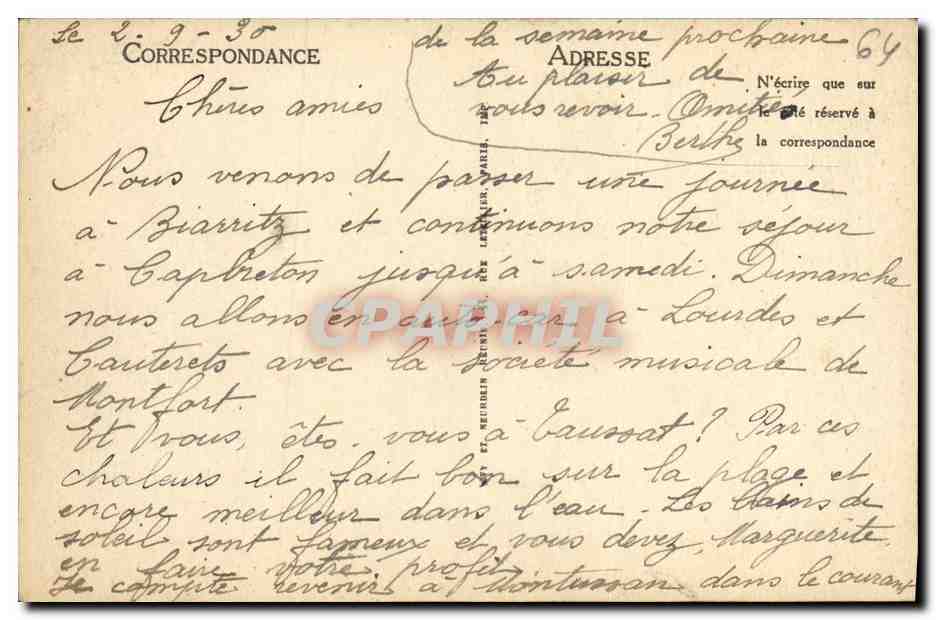 le 2-9-30
CORRESPONDANCE
Chères amies
Nous venons de passer une journée
à Biarritz et continuons notre séjour
à Capbreton jusqu'à samedi. Dimanche
nous allons en auto-car à Lourdes et
Cauterets avec la société musicale de
Montfort.
Et vous, êtes-vous à Taussat? Par ces
chaleurs il fait bon sur la plage et
encore meilleur dans l'eau - Les bains de
soleil sont fameux et vous devez, Marguerite,
en faire votre profit
Je compte revenir à Montussan dans le courant
de la semaine prochaine
Au plaisir de
vous revoir - Amitiés
Berthe
ADRESSE
64
N'écrire que sur
le côté réservé à
la correspondance
LÉVY ET NEURDEIN RÉUNIS, 44, RUE LETELLIER, PARIS, IMP.
CPAPHIL